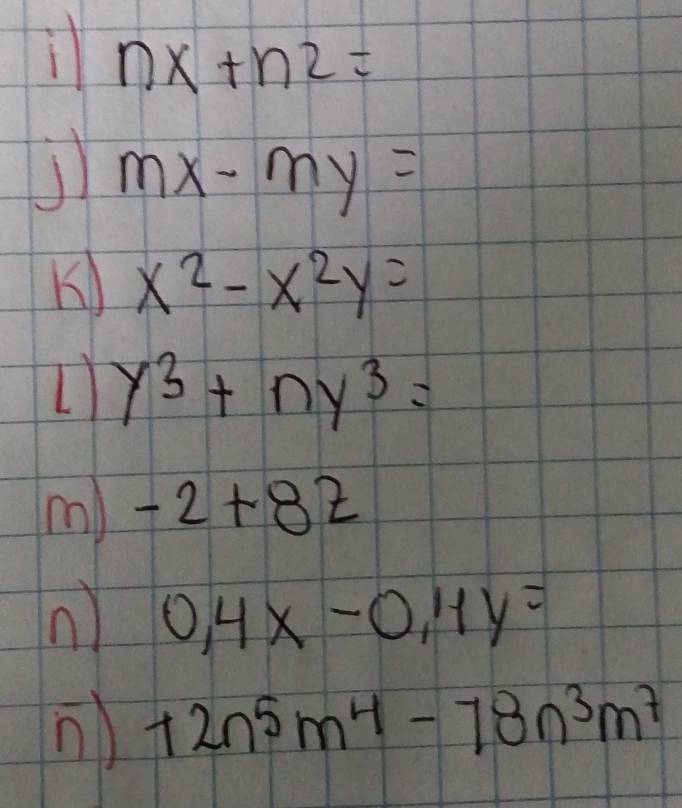 i) nx + n2 =
j) mx - my =
k) x² - x²y =
l) y³ + ny³ =
m) -2 + 8z
n) 0,4x - 0,4y =
ñ) +2n⁵m⁴ - 18n³m⁷